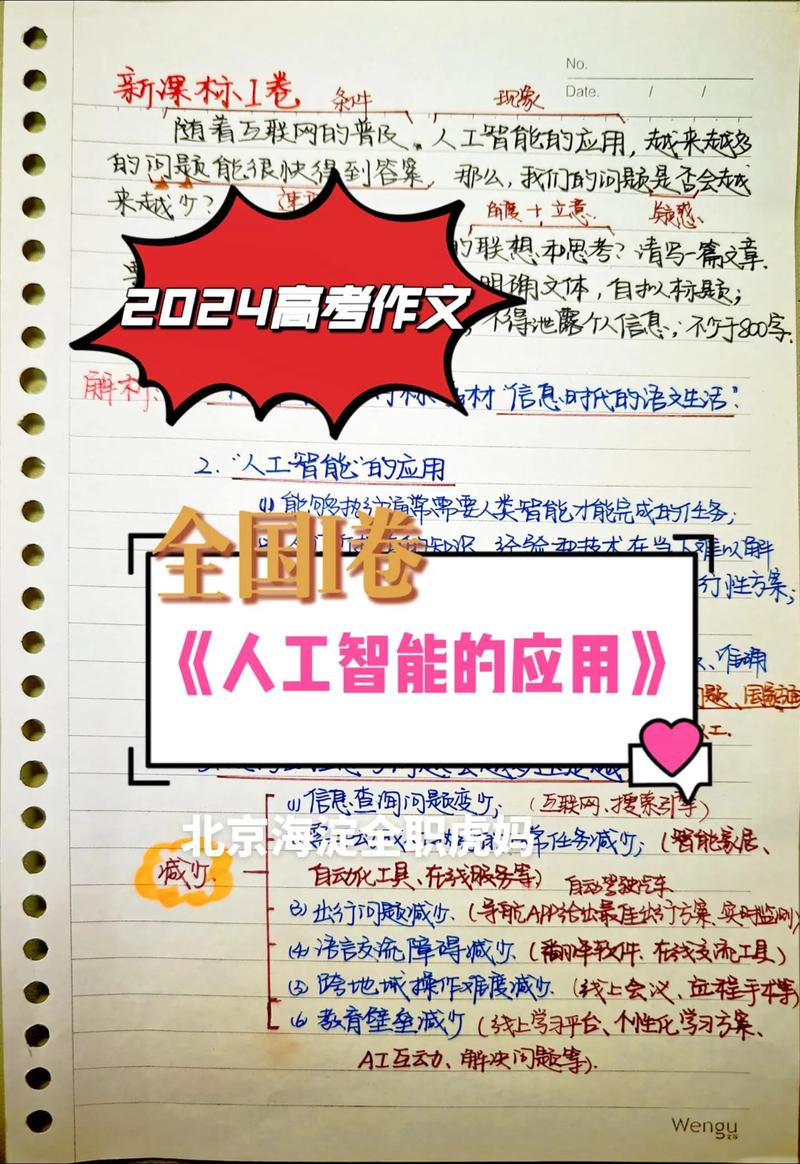 No.
Date. / /
新课标I卷
条件 现象
随着互联网的普及、人工智能的应用,越来越多
的问题能很快得到答案。那么,我们的问题是否会越
来越少?
角度+立意 疑惑
的联想和思考?请写一篇文章。
明确文体,自拟标题;
不得泄露个人信息;不少于800字.
2024高考作文
解材:
教材“信息时代的语文生活”.
2.“人工智能”的应用
(1)能够执行通常需要人类智能才能完成的任务;
知识、经验和技术在当下难以解
行性方案;
全国I卷
《人工智能的应用》
、准确
减少
(1)信息查询问题变少; (互联网、搜索引擎)
北京海淀全职虎妈
常任务减少; (智能家居、
自动化工具、在线服务等) 自动驾驶汽车
(3)出行问题减少.(导航APP给出最佳出行方案、实时监测)
(4)语言交流障碍减少.(翻译软件、在线交流工具)
(5)跨地域操作难度减少.(线上会议、远程手术等)
(6)教育壁垒减少(线上学习平台、个性化学习方案、
AI互动、解决问题等).
Wengu